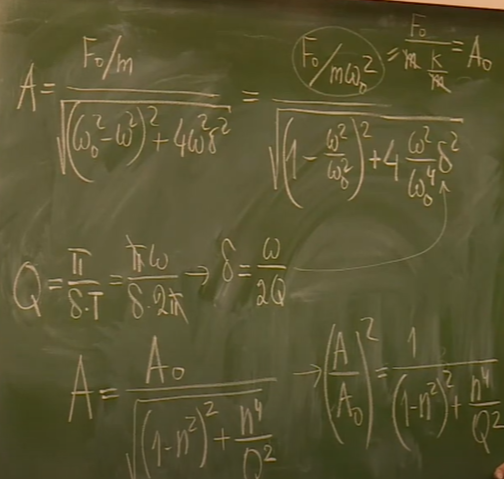 A = F₀/m / √((ω₀² - ω²)² + 4ω²δ²) = F₀/mω₀² / √((1 - ω²/ω₀²)² + 4 ω²/ω₀⁴ δ²) = F₀ / m k/m = A₀
Q = π/δ·T = πω/δ·2π → δ = ω/2Q
A = A₀ / √((1-n²)² + n⁴/Q²) → (A/A₀)² = 1 / (1-n²)² + n⁴/Q²